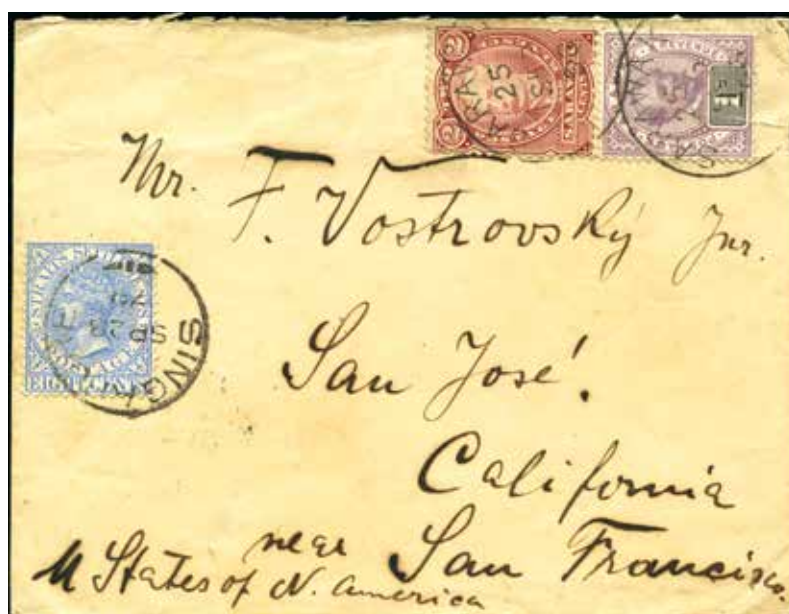 SARAWAK
25
REVENUE
SARAWA
Mr. F. Vostrovský Jnr.
STRAITS SETTLEMENTS
POSTAGE
EIGHT CENTS
SINGA
SP 28
San José.
California
near San Francisco.
U States of N. America